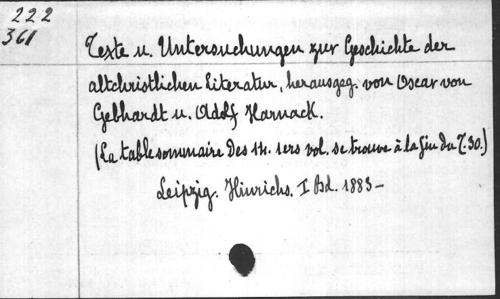 222
361
Texte u. Untersuchungen zur Geschichte der
altchristlichen Literatur, herausgeg. von Oscar von
Gebhardt u. Adolf Harnack.
(La table sommaire des 1ers vol. se trouve à la fin du T. 30.)
Leipzig. Hinrichs. I Bd. 1883-